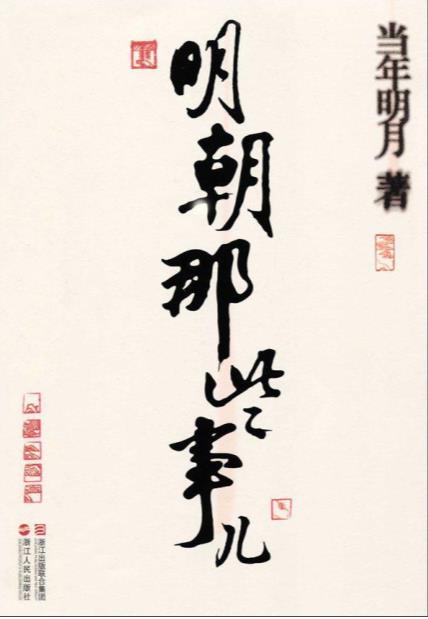 当年明月 著
明朝那些事儿
浙江出版联合集团
浙江人民出版社